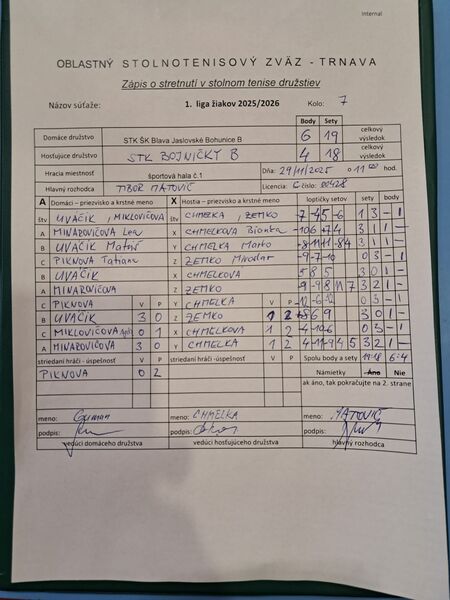 Internal
OBLASTNÝ STOLNOTENISOVÝ ZVÄZ - TRNAVA
Zápis o stretnutí v stolnom tenise družstiev
Názov súťaže: 1. liga žiakov 2025/2026 Kolo: 7
Body Sety
Domáce družstvo STK ŠK Blava Jaslovské Bohunice B 6 19 celkový výsledok
Hosťujúce družstvo STK BOJNIČKY B 4 18 celkový výsledok
Hracia miestnosť športová hala č.1 Dňa: 29/11/2025 o 11 00 hod.
Hlavný rozhodca TIBOR MATOVIČ Licencia: C číslo: 20428
A Domáci - priezvisko a krstné meno X Hostia - priezvisko a krstné meno loptičky setov sety body
štv UVAČIK, MIKLOVIČOVÁ štv CHMELKA, ZEMKO -7 -4 5 -6 1 3 - 1
A MINAROVIČOVA Lea X CHMELKOVA Bianka -10 6 7 4 3 1 1 -
B UVAČIK Matúš Y CHMELKA Marko -8 11 11 -8 4 3 1 -
C PIKNOVA Tatiana Z ZEMKO Miroslav -9 -7 -10 0 3 - 1
B UVAČIK X CHMELKOVÁ 5 8 5 3 0 1 -
A MINAROVIČOVA Z ZEMKO 3 2 1 -
C PIKNOVA V P Y CHMELKA V P 0 3 - 1
B UVAČIK 3 0 Z ZEMKO 1 2 8 6 9 3 0 1 -
C MIKLOVIČOVÁ 0 1 X CHMELKOVA 1 2 0 3 - 1
A MINAROVIČOVA 3 0 Y CHMELKA 1 2 4 -11 -9 4 5 3 2 1 -
striedaní hráči - úspešnosť V P striedaní hráči - úspešnosť V P Spolu body a sety 19:18 6:4
PIKNOVA 0 2 Námietky Áno Nie
ak áno, tak pokračujte na 2. strane
meno: meno: CHMELKA meno: MATOVIČ
podpis: podpis: podpis:
vedúci domáceho družstva vedúci hosťujúceho družstva hlavný rozhodca